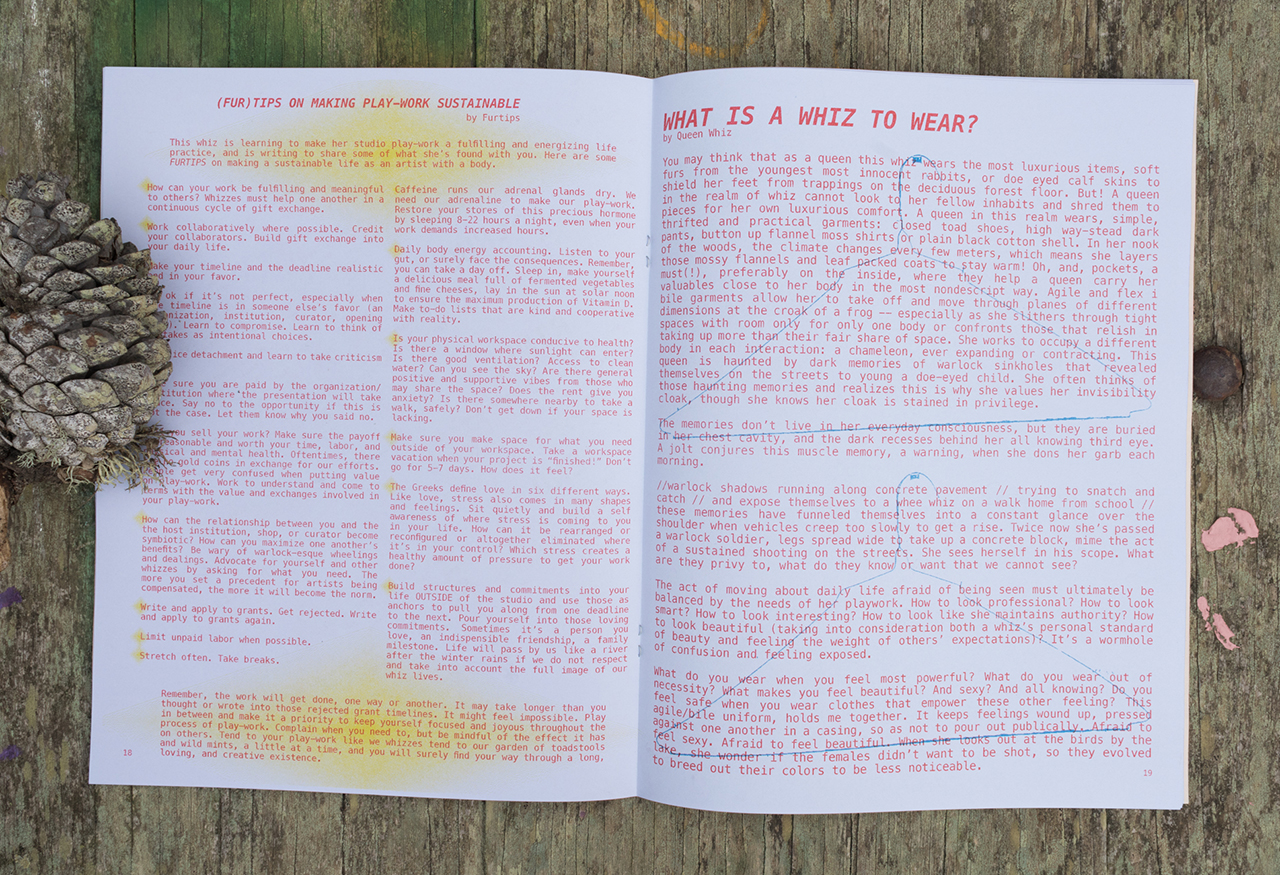 (FUR)TIPS ON MAKING PLAY–WORK SUSTAINABLE
by Furtips
This whiz is learning to make her studio play–work a fulfilling and energizing life
practice, and is writing to share some of what she's found with you. Here are some
FURTIPS on making a sustainable life as an artist with a body.
How can your work be fulfilling and meaningful
to others? Whizzes must help one another in a
continuous cycle of gift exchange.
Work collaboratively where possible. Credit
your collaborators. Build gift exchange into
your daily life.
your timeline and the deadline realistic
in your favor.
ok if it's not perfect, especially when
timeline is in someone else's favor (an
institution, curator, opening
Learn to compromise. Learn to think of
as intentional choices.
detachment and learn to take criticism
sure you are paid by the organization/
where the presentation will take
Say no to the opportunity if this is
the case. Let them know why you said no.
you sell your work? Make sure the payoff
and worth your time, labor, and
and mental health. Oftentimes, there
gold coins in exchange for our efforts.
get very confused when putting value
on play–work. Work to understand and come to
terms with the value and exchanges involved in
your play–work.
How can the relationship between you and the
the host institution, shop, or curator become
symbiotic? How can you maximize one another's
benefits? Be wary of warlock–esque wheelings
and dealings. Advocate for yourself and other
whizzes by asking for what you need. The
more you set a precedent for artists being
compensated, the more it will become the norm.
Write and apply to grants. Get rejected. Write
and apply to grants again.
Limit unpaid labor when possible.
Stretch often. Take breaks.
Caffeine runs our adrenal glands dry. We
need our adrenaline to make our play–work.
Restore your stores of this precious hormone
by sleeping 8–22 hours a night, even when your
work demands increased hours.
Daily body energy accounting. Listen to your
gut, or surely face the consequences. Remember,
you can take a day off. Sleep in, make yourself
a delicious meal full of fermented vegetables
and fine cheeses, lay in the sun at solar noon
to ensure the maximum production of Vitamin D.
Make to–do lists that are kind and cooperative
with reality.
Is your physical workspace conducive to health?
Is there a window where sunlight can enter?
Is there good ventilation? Access to clean
water? Can you see the sky? Are there general
positive and supportive vibes from those who
may share the space? Does the rent give you
anxiety? Is there somewhere nearby to take a
walk, safely? Don't get down if your space is
lacking.
Make sure you make space for what you need
outside of your workspace. Take a workspace
vacation when your project is "finished!" Don't
go for 5–7 days. How does it feel?
The Greeks define love in six different ways.
Like love, stress also comes in many shapes
and feelings. Sit quietly and build a self
awareness of where stress is coming to you
in your life. How can it be rearranged or
reconfigured or altogether eliminated where
it's in your control? Which stress creates a
healthy amount of pressure to get your work
done?
Build structures and commitments into your
life OUTSIDE of the studio and use those as
anchors to pull you along from one deadline
to the next. Pour yourself into those loving
commitments. Sometimes it's a person you
love, an indispensible friendship, a family
milestone. Life will pass by us like a river
after the winter rains if we do not respect
and take into account the full image of our
whiz lives.
Remember, the work will get done, one way or another. It may take longer than you
thought or wrote into those rejected grant timelines. It might feel impossible. Play
in between and make it a priority to keep yourself focused and joyous throughout the
process of play–work. Complain when you need to, but be mindful of the effect it has
on others. Tend to your play–work like we whizzes tend to our garden of toadstools
and wild mints, a little at a time, and you will surely find your way through a long,
loving, and creative existence.
18
WHAT IS A WHIZ TO WEAR?
by Queen Whiz
You may think that as a queen this whiz wears the most luxurious items, soft
furs from the youngest most innocent rabbits, or doe eyed calf skins to
shield her feet from trappings on the deciduous forest floor. But! A queen
in the realm of whiz cannot look to her fellow inhabits and shred them to
pieces for her own luxurious comfort. A queen in this realm wears, simple,
thrifted and practical garments: closed toad shoes, high way–stead dark
pants, button up flannel moss shirts or plain black cotton shell. In her nook
of the woods, the climate changes every few meters, which means she layers
those mossy flannels and leaf packed coats to stay warm! Oh, and, pockets, a
must(!), preferably on the inside, where they help a queen carry her
valuables close to her body in the most nondescript way. Agile and flex i
bile garments allow her to take off and move through planes of different
dimensions at the croak of a frog –– especially as she slithers through tight
spaces with room only for only one body or confronts those that relish in
taking up more than their fair share of space. She works to occupy a different
body in each interaction: a chameleon, ever expanding or contracting. This
queen is haunted by dark memories of warlock sinkholes that revealed
themselves on the streets to young a doe–eyed child. She often thinks of
those haunting memories and realizes this is why she values her invisibility
cloak, though she knows her cloak is stained in privilege.
The memories don't live in her everyday consciousness, but they are buried
in her chest cavity, and the dark recesses behind her all knowing third eye.
A jolt conjures this muscle memory, a warning, when she dons her garb each
morning.
//warlock shadows running along concrete pavement // trying to snatch and
catch // and expose themselves to a whee whiz on a walk home from school //
these memories have funneled themselves into a constant glance over the
shoulder when vehicles creep too slowly to get a rise. Twice now she's passed
a warlock soldier, legs spread wide to take up a concrete block, mime the act
of a sustained shooting on the streets. She sees herself in his scope. What
are they privy to, what do they know or want that we cannot see?
The act of moving about daily life afraid of being seen must ultimately be
balanced by the needs of her playwork. How to look professional? How to look
smart? How to look interesting? How to look like she maintains authority? How
to look beautiful (taking into consideration both a whiz's personal standard
of beauty and feeling the weight of others' expectations)? It's a wormhole
of confusion and feeling exposed.
What do you wear when you feel most powerful? What do you wear out of
necessity? What makes you feel beautiful? And sexy? And all knowing? Do you
feel safe when you wear clothes that empower these other feeling? This
agile/bile uniform, holds me together. It keeps feelings wound up, pressed
against one another in a casing, so as not to pour out publically. Afraid to
feel sexy. Afraid to feel beautiful. When she looks out at the birds by the
lake, she wonder if the females didn't want to be shot, so they evolved
to breed out their colors to be less noticeable.
19